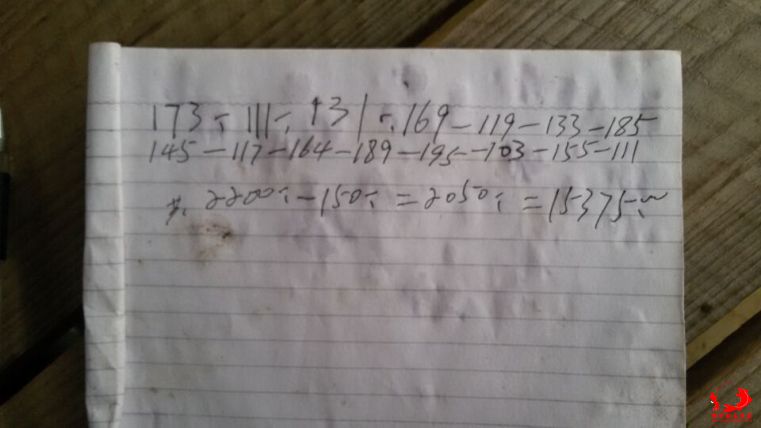 173 . 111 . 131 . 169 - 119 - 133 - 185
145 - 117 - 164 - 189 - 195 - 103 - 155 - 111
共. 2200 - 150 = 2050 = 15375